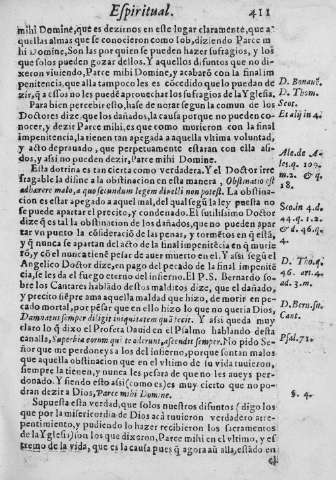 Espiritual. 411
mihi Domine, que es dezirnos en este logar claramente, que a
quellas almas que se conocieron como Iob, diziendo Parce m
hi Domine, Son las por quien se pueden hazer sufragios, y los
que solos pueden gozar dellos. Y aquellos difuntos que no di-
xeron viuiendo, Parce mihi Domine, y acabarõ con la final im
penitencia, que alla tampoco les es cõcedido que lo puedan de
zir, q̃ a essos no les puede aprouechar los sufragios de la Yglesia.
Para bien percebir esto, hase de notar segun la comun de los
Doctores dize, que los dañados, la causa porque no pueden co-
nocer, y dezir Parce mihi, es que como murieron con la final
impenitencia, la tienen tan apegada a aquella vltima voluntad,
y acto deprauado, que perpetuamente estaran con ella asi-
dos, y assi no pueden dezir, Parce mihi Domine.
Esta dotrina es tan cierta como verdadera. Y el Doctor irre
fragable la difine a la obstinacion en esta manera, Obstinatio est
adhærere malo, a quo secundum legem diuelli non potest. La obstina-
cion es estar apegado a aquel mal, del qual segũ la ley puesta no
se puede apartar el precito, y condenado. El sutilissimo Doctor
dize q̃ es tal la obstinacion de los dañados, que no pueden apar
tar vn punto la cõsideraciõ de las penas, y tormẽtos en q̃ estã,
y q̃ nunca se apartan del acto de la final impenitẽcia en q̃ murie
rõ, y cõ el nunca tienẽ pesar de auer muerto en el. Y assi segũ el
Angelico Doctor dize, en pago del pecado de la final impenitẽ
cia, se les da el fuego eterno del infierno. El P. S. Bernardo so-
bre los Cantares hablãdo destos malditos dize, que el dañado,
y precito siẽpre ama aquella maldad que hizo, de morir en pe-
cado mortal, por pẽsar que en ello hizo lo que no queria Dios,
Damnatus semper diligit iniquitatem quã fecit. Y assi queda muy
claro lo q̃ dixo el Profeta Dauid en el Psalmo hablando desta
canalla, Superbia eorum qui te oderunt, ascendit semper. No pido Se-
ñor que me perdoneys a los del infierno, porque son tan malos
que aquella obstinacion que en el vltimo de su vida tuuieron,
siempre la tienen, y nunca les pesara de que no les aueys per-
donado. Y siendo esto assi (como es) muy cierto que no po-
dran dezir a Dios, Parce mihi Domine.
Supuesta esta verdad, que solos nuestros difuntos (digo los
que por la misericordia de Dios acà tuuieron verdadero arre-
pentimiento, y pudiendo lo hazer recibieron los sacramentos
de la Yglesia) son los que dixeron, Parce mihi en el vltimo, y es
tremo de la vida, que es la causa pues q̃ agora aũ alla, estãdo en
el
D. Bonaut.
D. Thom.
Scot.
Et alij in 4.
Ale. de A-
les. q. 109.
m. 2. & q.
18.
Sco. in 4. d.
44. q. 1. 2.
& d. 46. q.
4.
D. Tho. q.
46. art. 4.
ad. 3. m.
D. Bern. sn.
Cant.
Psal. 73.
§. 4.